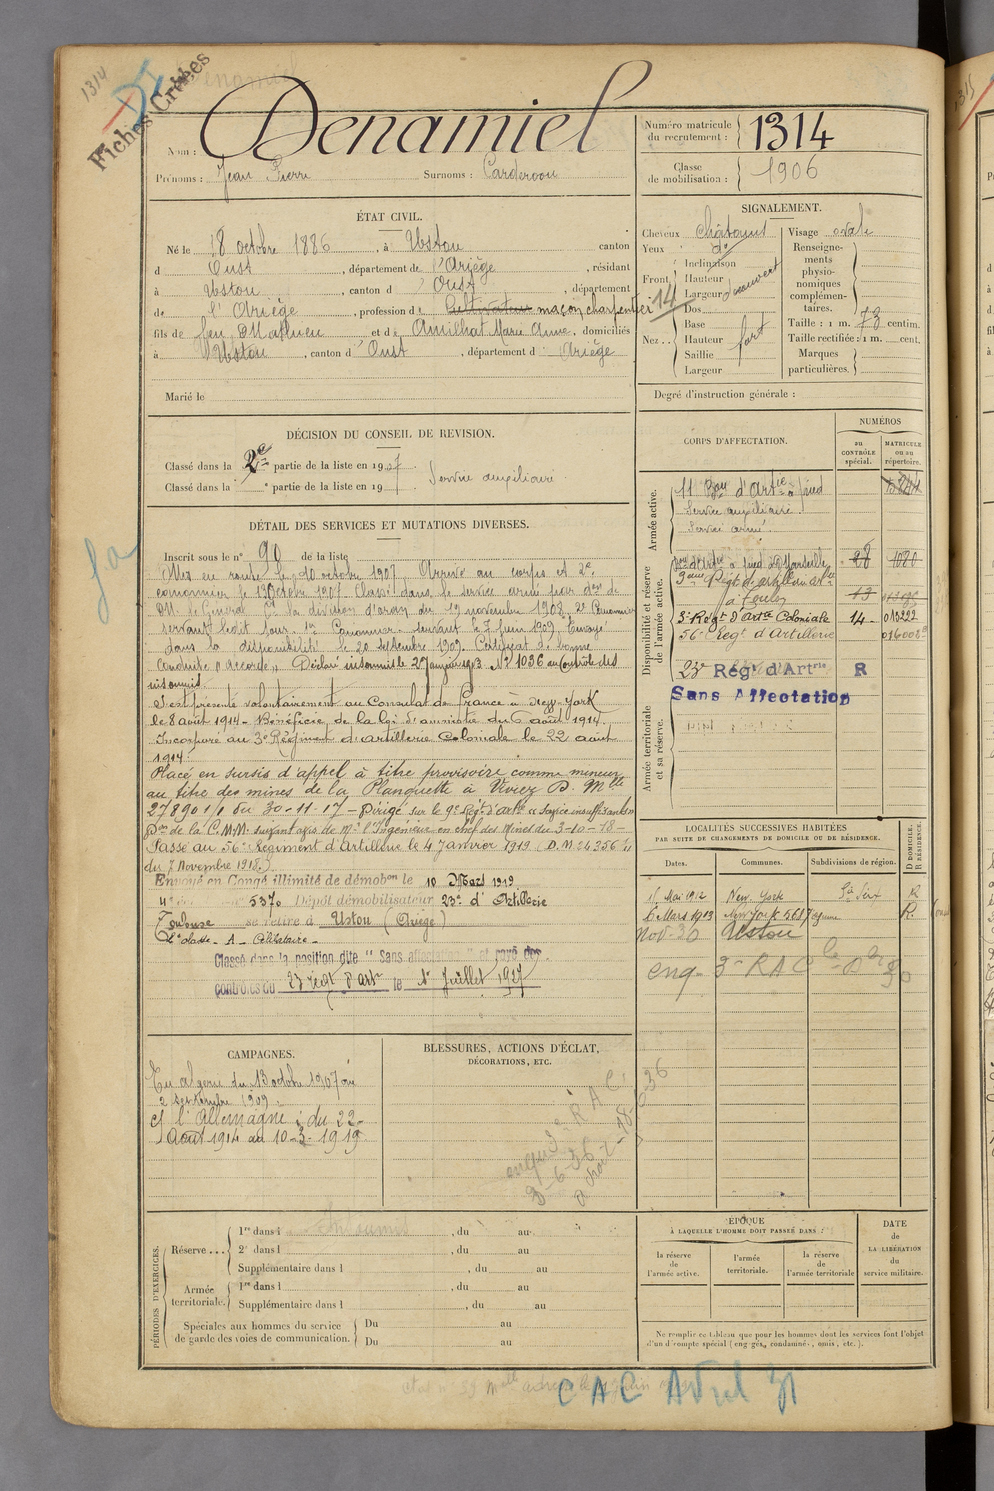 1314
Fiches Créées
Nom : Denamiel
Prénoms : Jean Pierre Surnoms : Carderoou
Numéro matricule
du recrutement : 1314
Classe
de mobilisation : 1906
ÉTAT CIVIL.
Né le 18 octobre 1886, à Ustou canton
d'Oust, département de l'Ariège, résidant
à Ustou, canton d'Oust, département
de l'Ariège, profession de Cultivateur maçon charpentier 14
fils de feu Mathieu et de Amilhat Marie Anne, domiciliés
à Ustou, canton d'Oust, département d Ariège
Marié le
SIGNALEMENT.
Cheveux châtains
Yeux do
Front Inclinaison
Hauteur
Largeur découvert
Nez Dos
Base
Hauteur fort
Saillie
Largeur
Visage ovale
Renseigne-
ments
physio-
nomiques
complémen-
taires.
Taille : 1 m. 73 centim.
Taille rectifiée : 1 m. cent.
Marques
particulières.
Degré d'instruction générale :
DÉCISION DU CONSEIL DE REVISION.
Classé dans la 2e partie de la liste en 1907. Service auxiliaire
Classé dans la e partie de la liste en 19
DÉTAIL DES SERVICES ET MUTATIONS DIVERSES.
Inscrit sous le n° 90 de la liste
Mis en route le 10 octobre 1907. Arrivé au corps et 2e
canonnier le 13 octobre 1907. Classé dans le service armé par don de
M. le Général Ct la division d'oran du 19 novembre 1908. 2e Canonnier
servant ledit jour. 1er Canonnier servant le 7 juin 1909. Envoyé
dans la disponibilité le 20 septembre 1909. Certificat de bonne
conduite "accordé". Déclaré insoumis le 27 1913 No 1036 au Contrôle des
insoumis.
S'est présenté volontairement au Consulat de France à New-York
le 8 août 1914 - Bénéficie de la loi d'amnistie du 5 août 1914.
Incorporé au 3e Régiment d'artillerie Coloniale le 22 août
1914.
Placé en sursis d'appel à titre provisoire comme mineur
au titre des mines de la Planquette à Viviez D. Mlle
27890 1/1 du 30-11-17 - Dirigé sur le 9e Régt d'Artie
Don de la C.M.M. suivant avis de Mr l'Ingénieur en chef des Mines du 3-10-18 -
Passé au 56e Régiment d'Artillerie le 4 Janvier 1919 (D.M 24356
du 7 Novembre 1918.)
Envoyé en Congé illimité de démobon le 10 Mars 1919
5370 Dépôt démobilisateur 23e d'Artillerie
Toulouse se retire à Ustou (Ariège)
A - Célibataire -
Classé dans la position dite "Sans affectation" et rayé des
contrôles du 23 Régt d'Artie le 1er Juillet 1927
CORPS D'AFFECTATION.
NUMÉROS
au
CONTRÔLE
spécial.
MATRICULE
ou au
répertoire.
Armée active.
11 Bon d'Artie à pied
Service auxiliaire.
Service armé.
Disponibilité et réserve
de l'armée active.
d'Artie à pied Marseille 28 1080
9eme Régt
à Toulon 13
3e Régt d'Artie Coloniale 14 010222
56e Régt d'Artillerie 016008
23e Régt d'Artrie R
Sans Affectation
Armée territoriale
et sa réserve.
LOCALITÉS SUCCESSIVES HABITÉES
PAR SUITE DE CHANGEMENTS DE DOMICILE OU DE RÉSIDENCE.
Dates. Communes. Subdivisions de région. D DOMICILE. R RÉSIDENCE.
15 Mai 1912 New York R
6 Mars 1913 New York 568 7e R.
Nov-30 Ustou
enq- 3e RAC
CAMPAGNES.
En algérie du 13 octobre 1907 au
2 septembre 1909.
Ct l'Allemagne : du 22
Août 1914 au 10-3-1919
BLESSURES, ACTIONS D'ÉCLAT,
DÉCORATIONS, ETC.
enqu 3e RAC
3-6-36
PÉRIODES D'EXERCICES.
Réserve ... 1re dans l insoumis, du au
2e dans l, du au
Supplémentaire dans l, du au
Armée
territoriale. 1re dans l, du au
Supplémentaire dans l, du au
Spéciales aux hommes du service
de garde des voies de communication. Du au
Du au
ÉPOQUE
À LAQUELLE L'HOMME DOIT PASSER DANS :
la réserve
de
l'armée active.
l'armée
territoriale.
la réserve
de
l'armée territoriale
DATE
de
LA LIBÉRATION
du
service militaire.
Ne remplir ce tableau que pour les hommes dont les services font l'objet
d'un décompte spécial (engagés, condamnés, omis, etc.).
CAC Avril 31